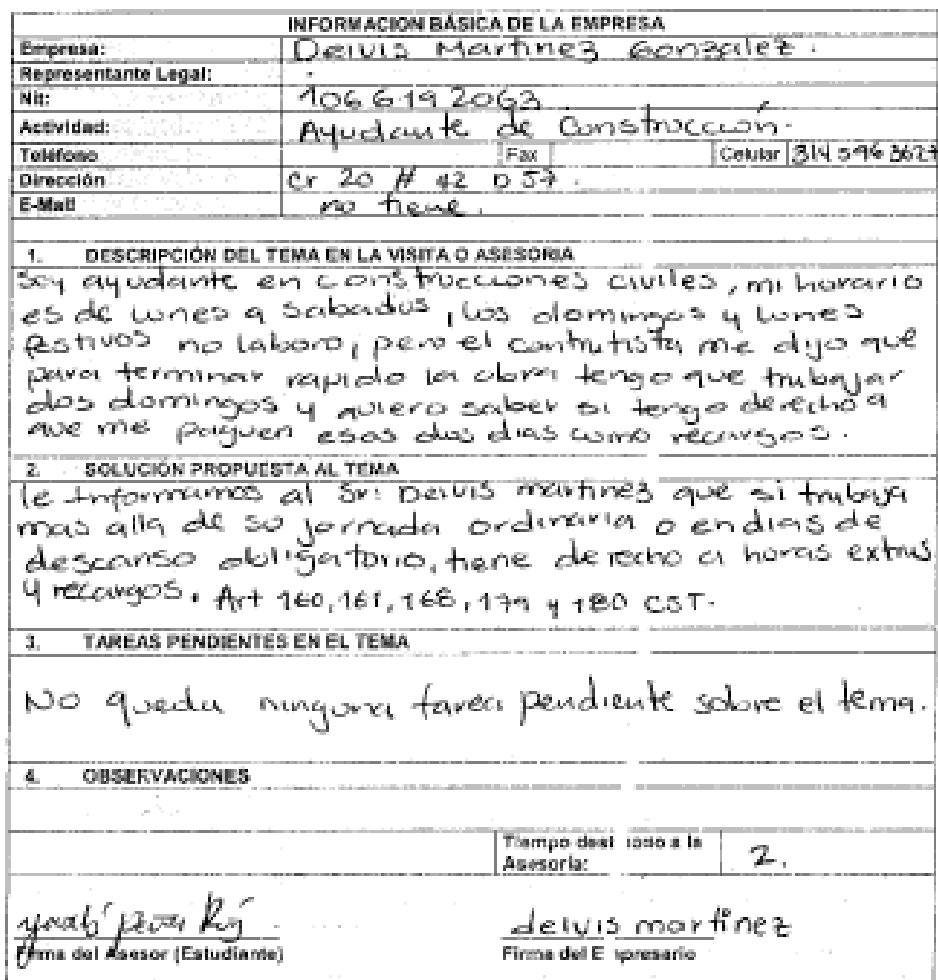 INFORMACION BÁSICA DE LA EMPRESA
Empresa: Deivis Martinez Gonzalez.
Representante Legal:
Nit: 1066192063
Actividad: Ayudante de Construcción.
Teléfono Fax Celular 314 596 3627
Dirección cr 20 # 42 D 57.
E-Mail no tiene.
1. DESCRIPCIÓN DEL TEMA EN LA VISITA O ASESORIA
Soy ayudante en construcciones civiles, mi horario
es de lunes a sabados, los domingos y lunes
festivos no laboro, pero el contratista me dijo que
para terminar rapido la obra tengo que trabajar
dos domingos y quiero saber si tengo derecho a
que me paguen esos dos dias como recargos.
2. SOLUCIÓN PROPUESTA AL TEMA
le Informamos al Sr: Deivis martinez que si trabaja
mas alla de su jornada ordinaria o en dias de
descanso obligatorio, tiene derecho a horas extras
y recargos. Art 160, 161, 168, 179 y 180 CST.
3. TAREAS PENDIENTES EN EL TEMA
No queda ninguna tarea pendiente sobre el tema.
4. OBSERVACIONES
Tiempo destinado a la
Asesoría: 2.
deivis martinez
Firma del Asesor (Estudiante) Firma del Empresario